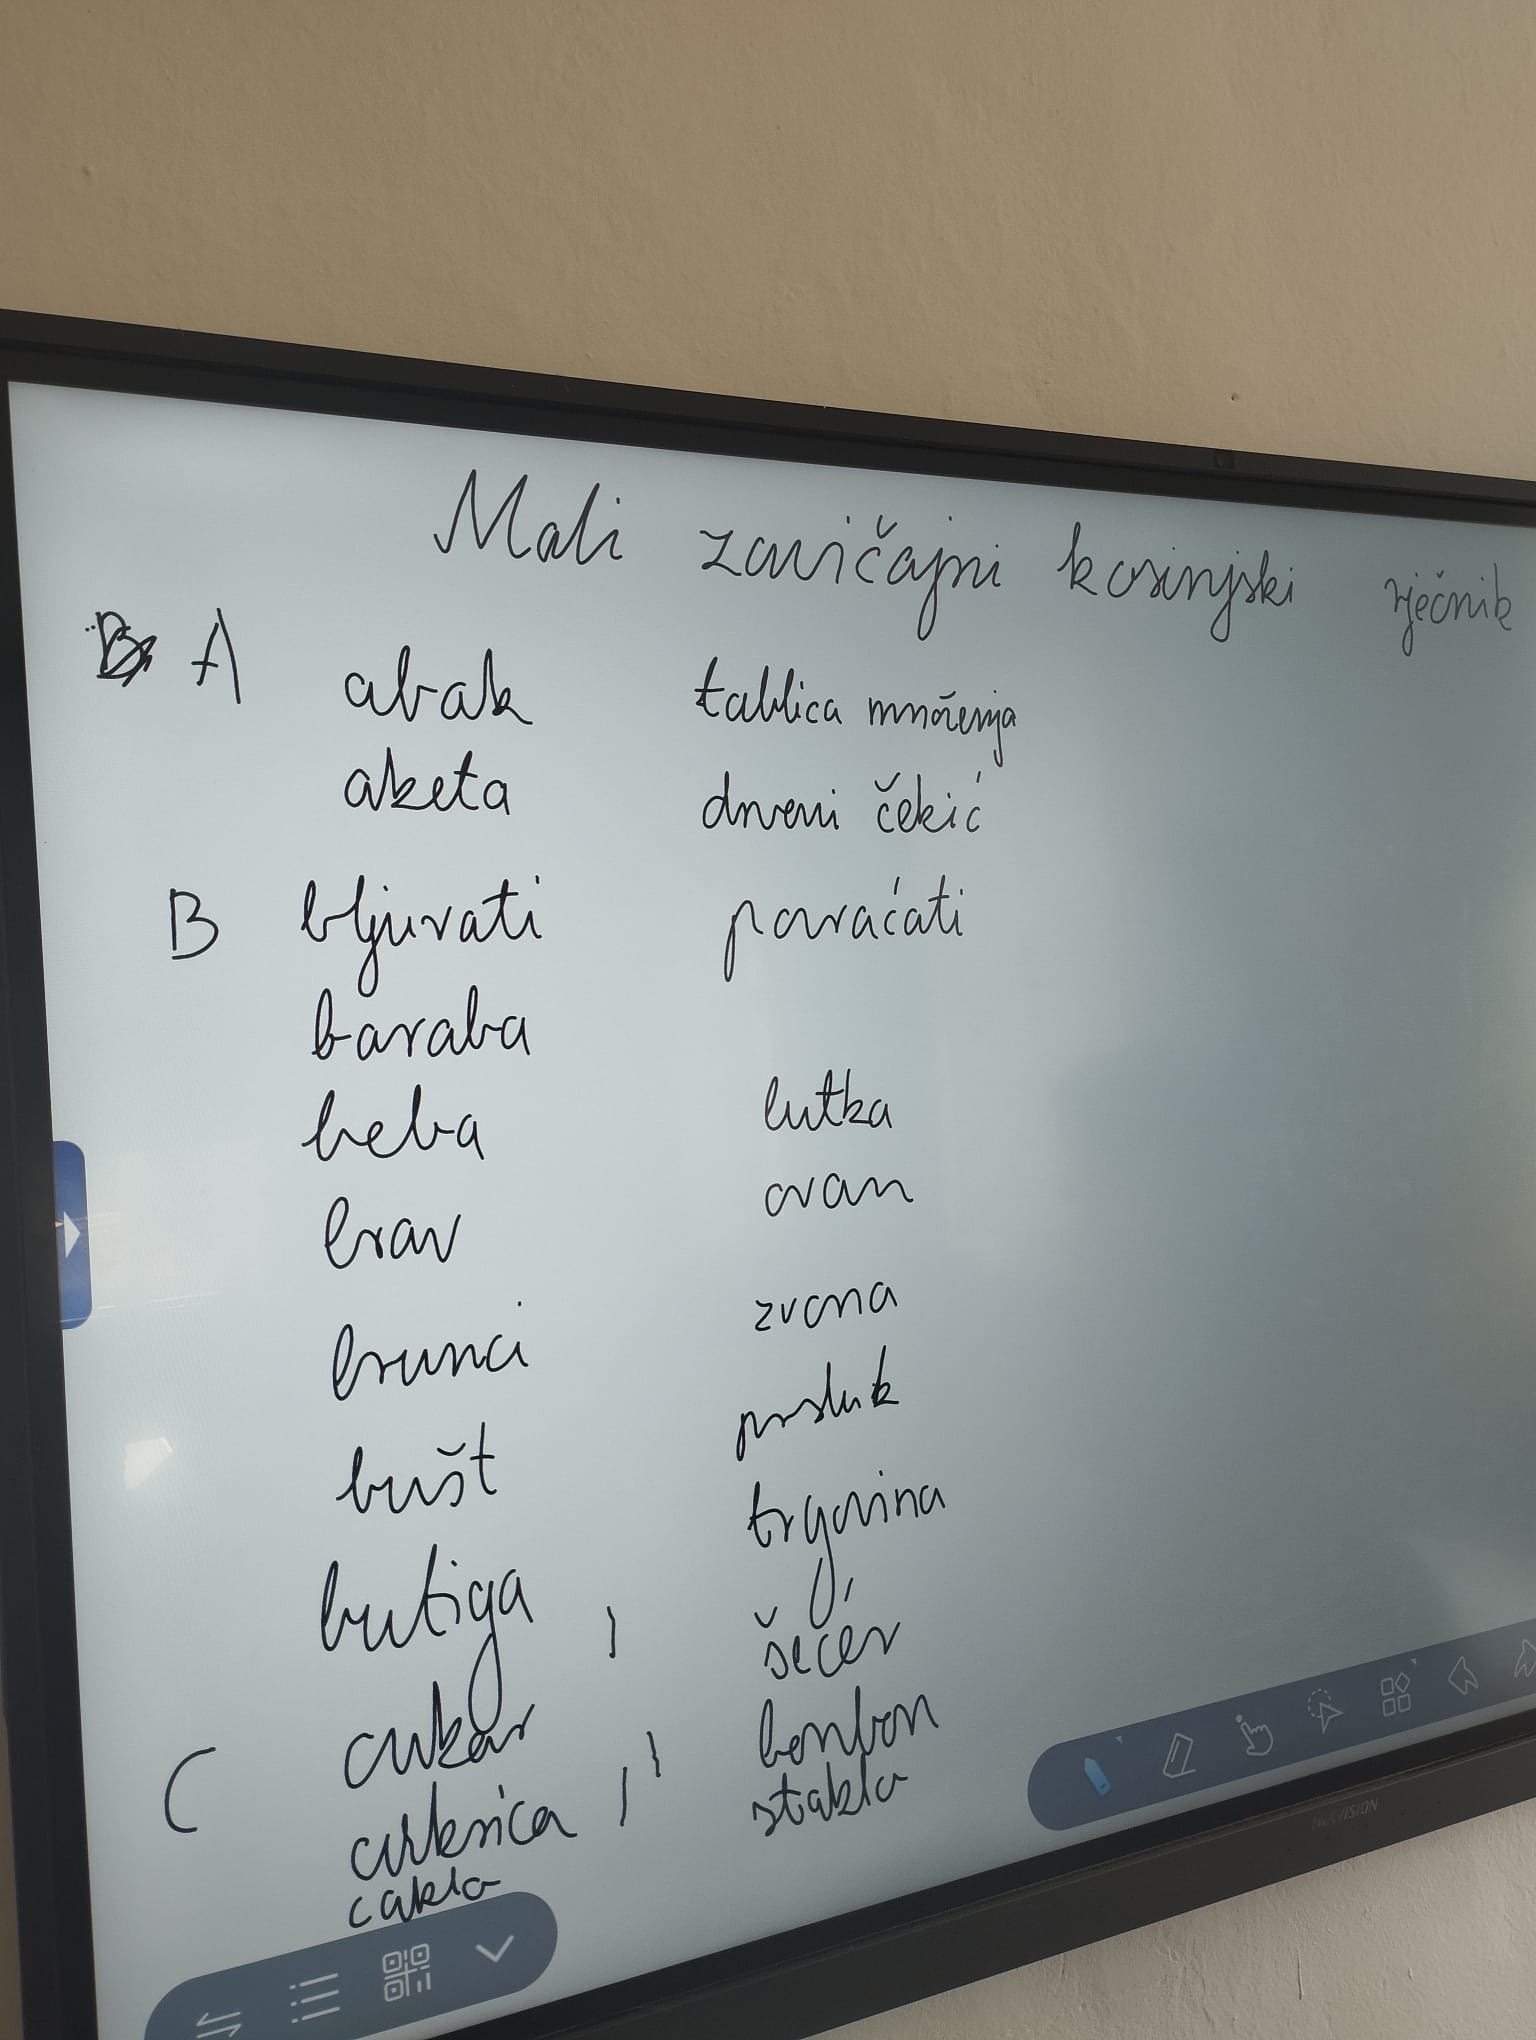 Mali zavičajni kosinjski rječnik
A abak tablica množenja
aketa drveni čekić
B bljuvati povraćati
baraba
beba lutka
brav ovan
brunci zvona
bušt prsluk
butiga trgovina
C cukar šećer
cukrica bonbon
caklo staklo
HIKVISION